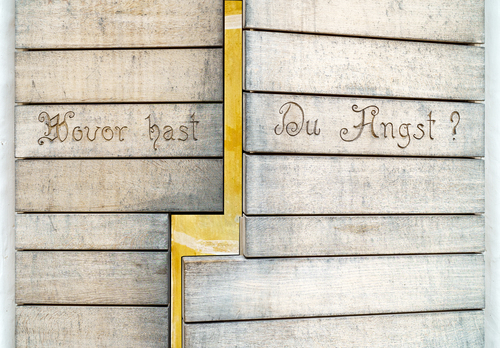 Wovor hast Du Angst ?